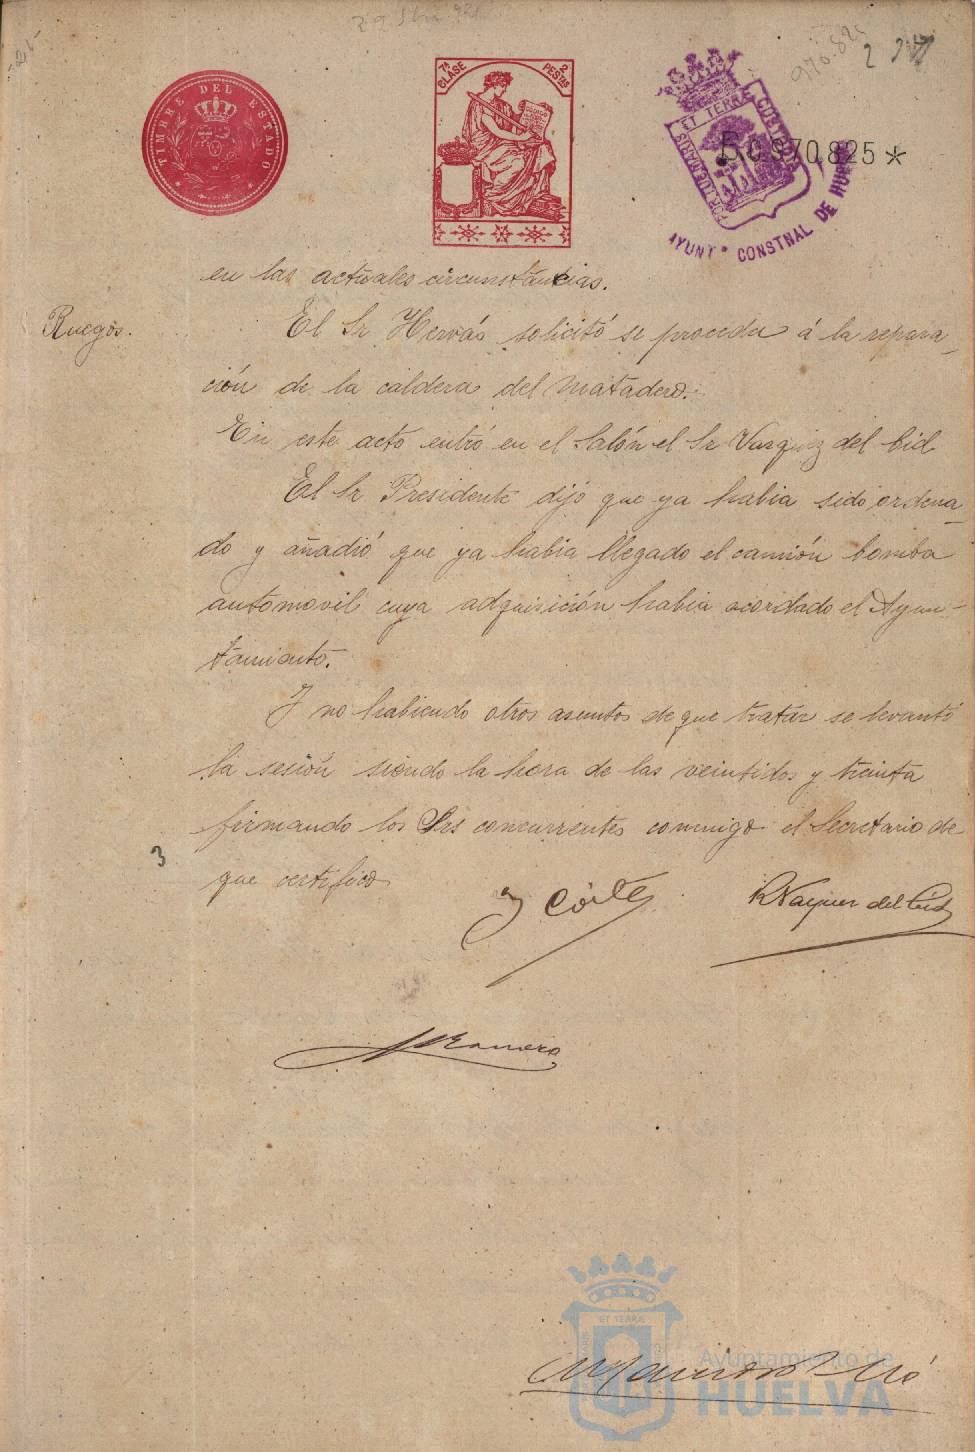 TIMBRE DEL ESTADO
7ª CLASE
2 PESTAS
PORTUS MARIS ET TERRÆ CUSTODIA
AYUNTº CONSTNAL DE HUELVA
970.825
0.970.825*
en las actuales circunstancias.
Ruegos.
El Sr Hervás solicitó se proceda á la repara_
ción de la caldera del Matadero.
En este acto entró en el Salón el Sr Vazquez del Cid
El Sr Presidente dijo que ya habia sido ordena_
do y añadió que ya habia llegado el camión bomba
automovil cuya adquisición habia acordado el Ayun_
tamiento.
Y no habiendo otros asuntos de que tratar se levantó
la sesión siendo la hora de las veintidos y treinta
firmando los Srs concurrentes conmigo el Secretario de
que certifico
3
R Vazquez del Cid
Romero
ET TERRÆ
Ayuntamiento de
HUELVA